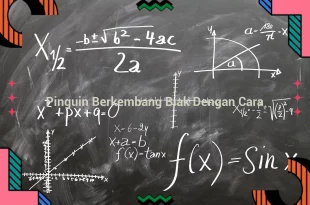 X₁/₂ = -b ± √b² - 4ac / 2a
Pinguin Berkembang Biak Dengan Cara
x² + px + q = 0
x - 6 - 2y
x + a = b
f(x) = tan x
f(x) = Sin x